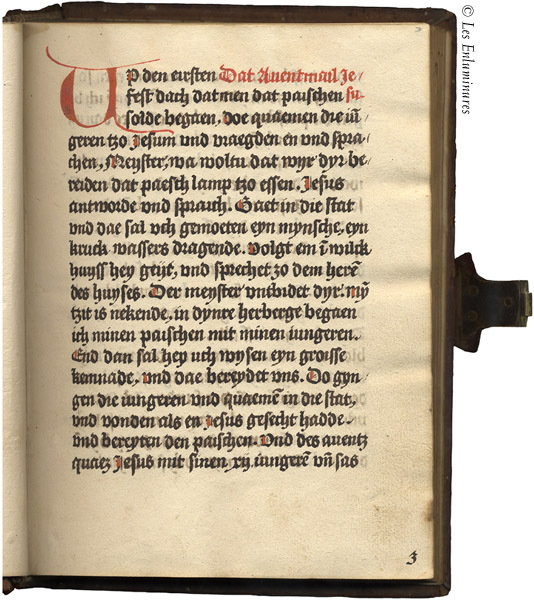 Up den eirsten Dat Auentmail Je/
fest dach dat men dat paischen su/
solde begaen, doe quaemen die iū/
geren tzo Jesum vnd vraegden en vnd spra/
chen, Meyster, wa woltu dat wyr dyr be/
reiden dat paesch lamp tzo essen, Jesus
antworde vnd sprauch. Gaet in die stat
vnd dae sal vch gemoeten eyn mynsche, eyn
kruck wassers dragende. volgt em ī wilck
huyss hey geyt, vnd sprechet zo dem herē
des huyses. Der meyster vntbidet dyr. mȳ
tzit is nekende, in dynre herberge begaen
ich minen paischen mit minen iungeren.
End dan sal hey uch wysen eyn groisse
kemnade, vnd dae bereydet vns. Do gyn/
gen die iungeren vnd quaemē in die stat,
vnd vonden als en Jesus gesecht hadde.
vnd bereyten den paischen. Vnd des auentz
quaez Jesus mit sinen xij iungerē vn̄ sas
3
© Les Enluminures